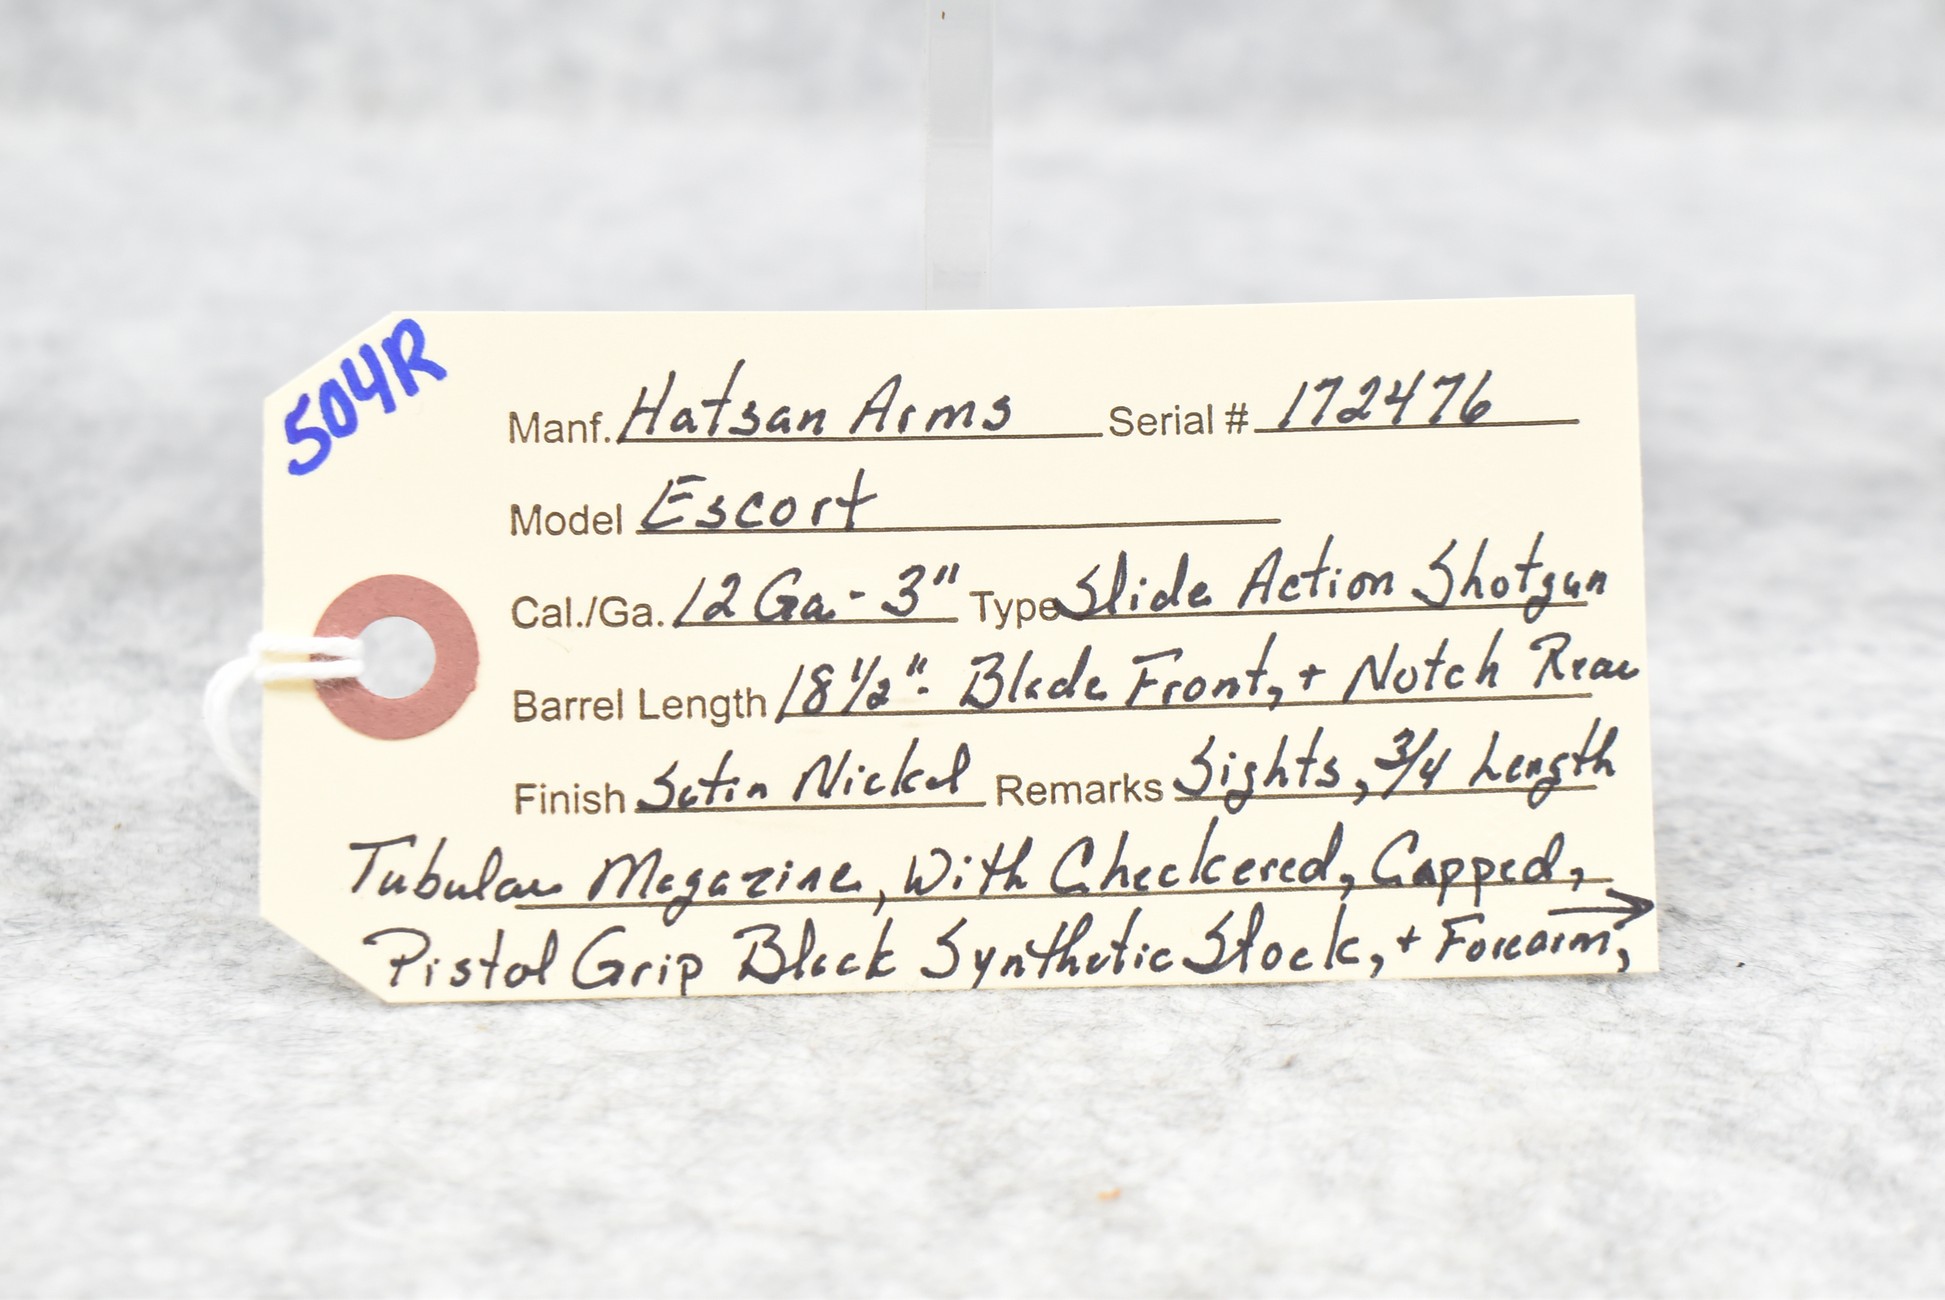 504R
Manf. Hatsan Arms Serial # 172476
Model Escort
Cal./Ga. 12 Ga - 3" Type Slide Action Shotgun
Barrel Length 18 1/2" - Blade Front, + Notch Rear
Finish Satin Nickel Remarks Sights, 3/4 Length
Tubular Magazine, With Checkered, Capped,
Pistol Grip Black Synthetic Stock, + Forearm, →